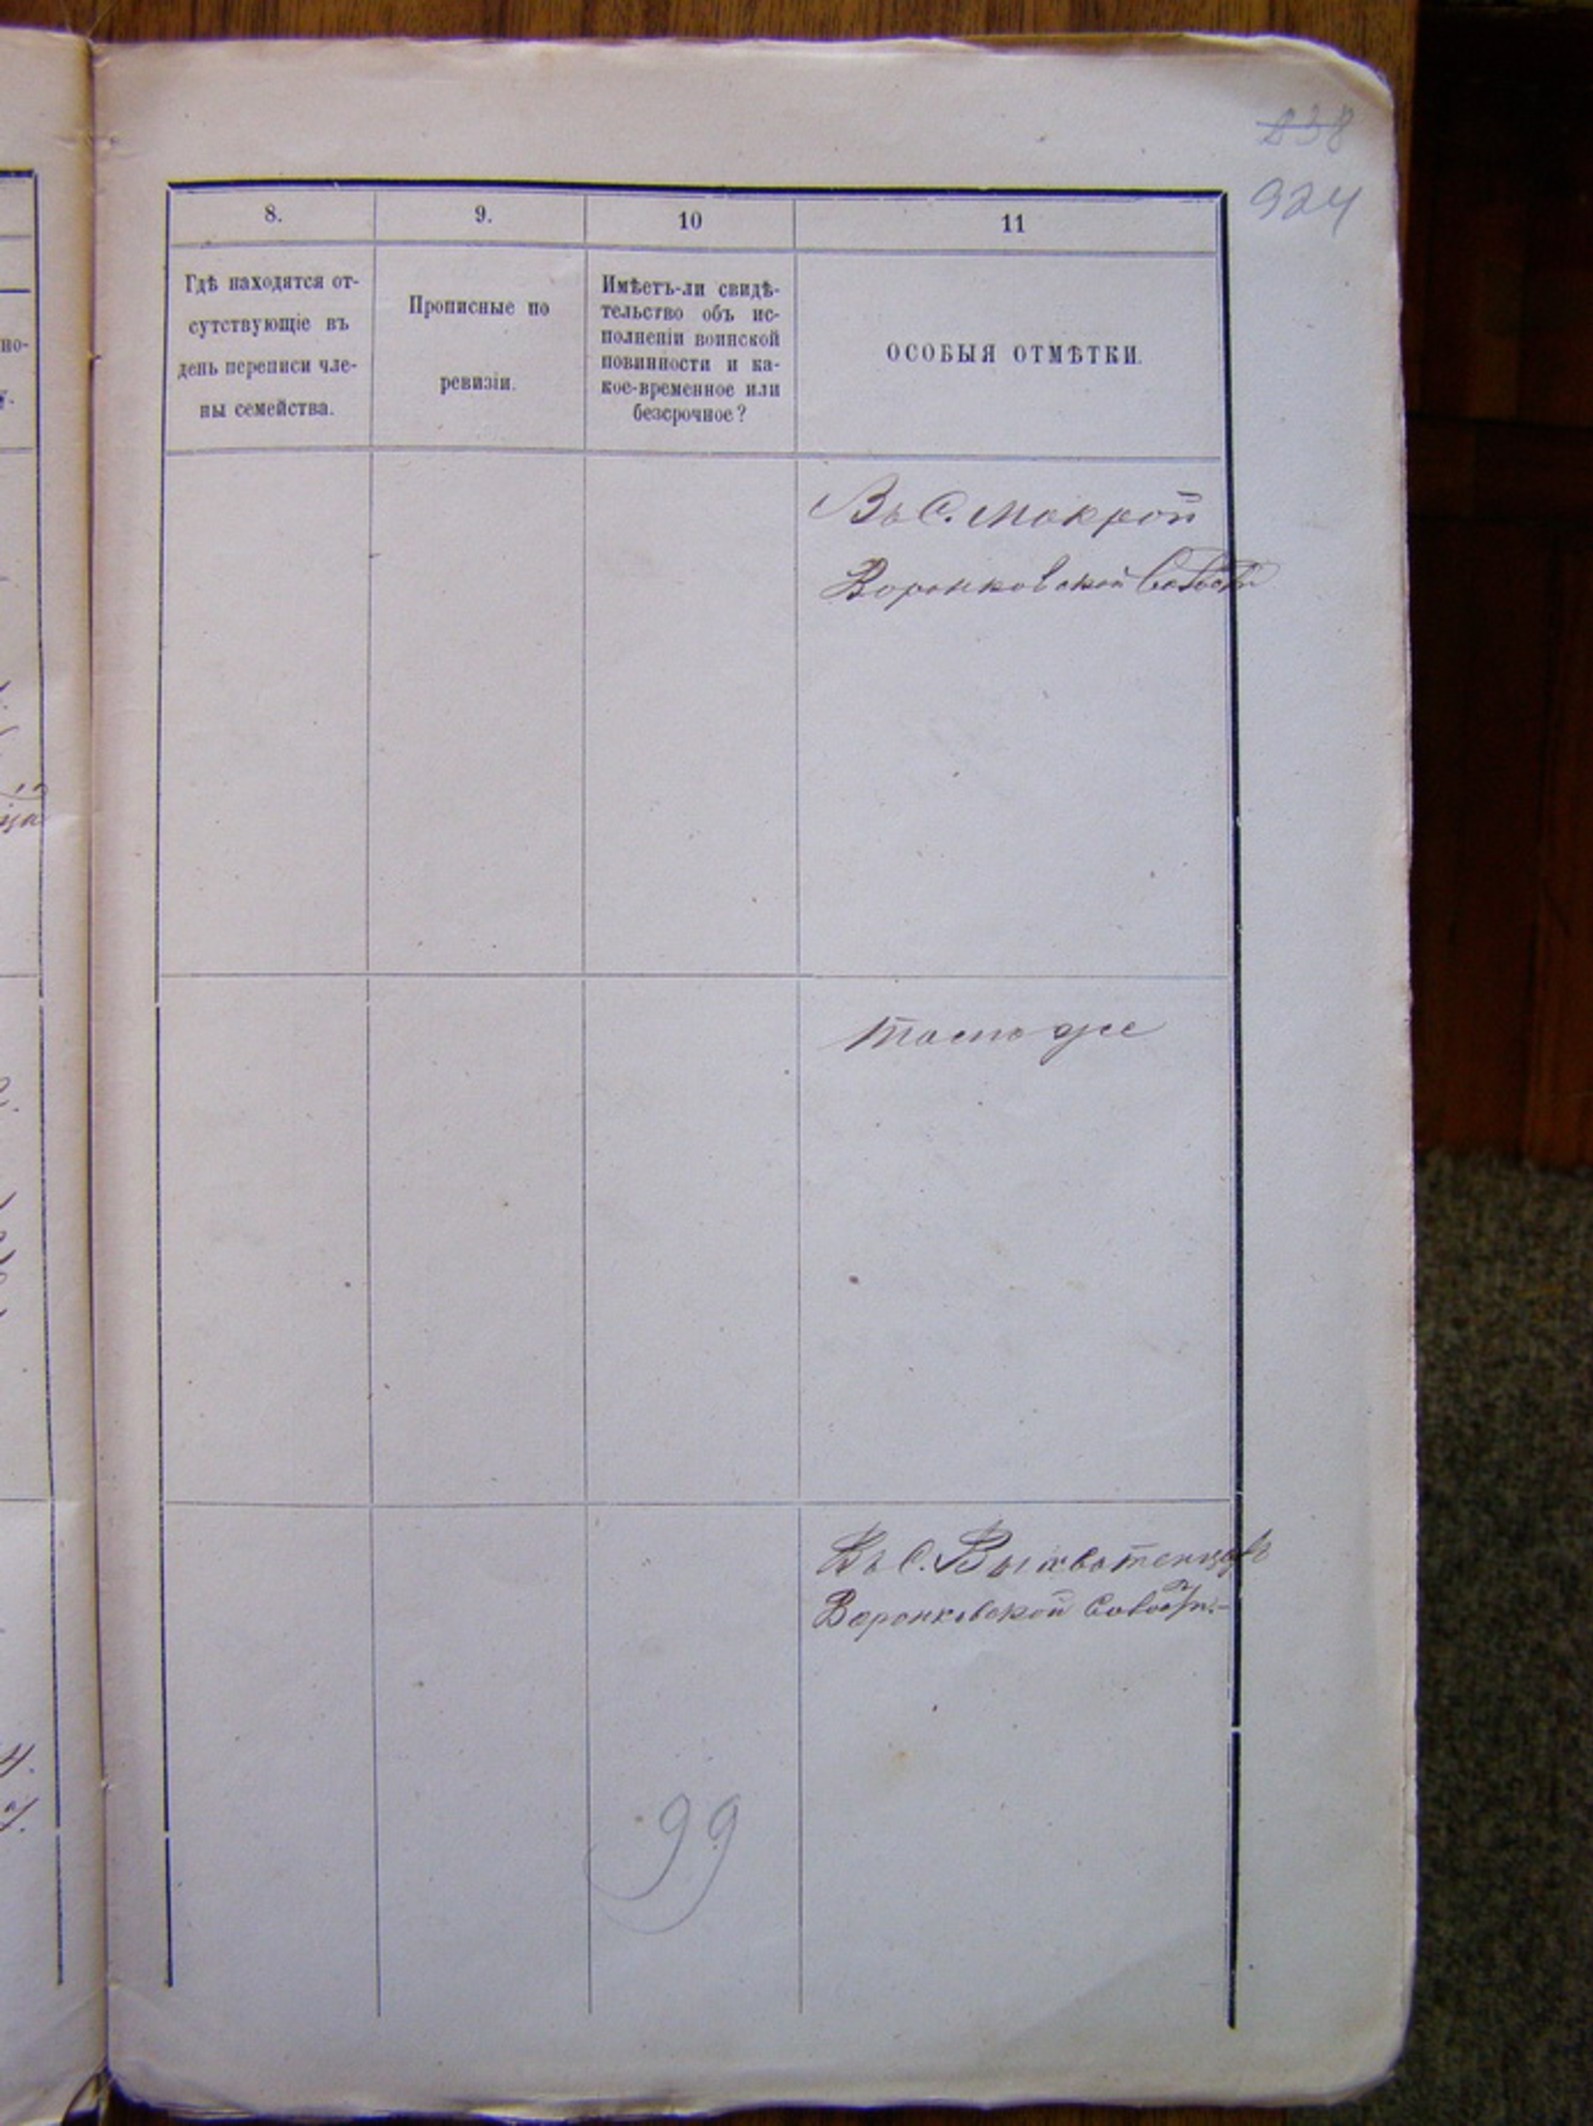 238
924
8.
9.
10
11
Гдѣ находятся от-
сутствующіе въ
день переписи чле-
ны семейства.
Прописные по
ревизіи.
Имѣетъ-ли свидѣ-
тельство объ ис-
полненіи воинской
повинности и ка-
кое-временное или
безсрочное?
ОСОБЫЯ ОТМѢТКИ.
но-
Въ С. Мокрой
Воронковской
тамо же
Въ С. Выхватенцахъ
Воронковской
99